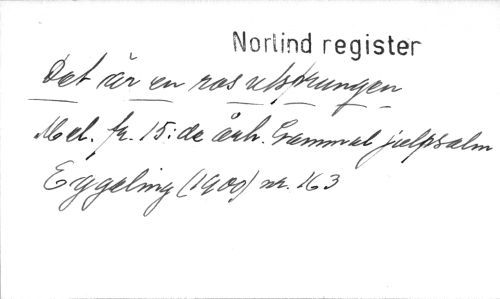 Norlind register
Det är en ros utsprungen
Mel. fr. 15:de årh. Gammal julpsalm
Eggeling (1900) nr. 163